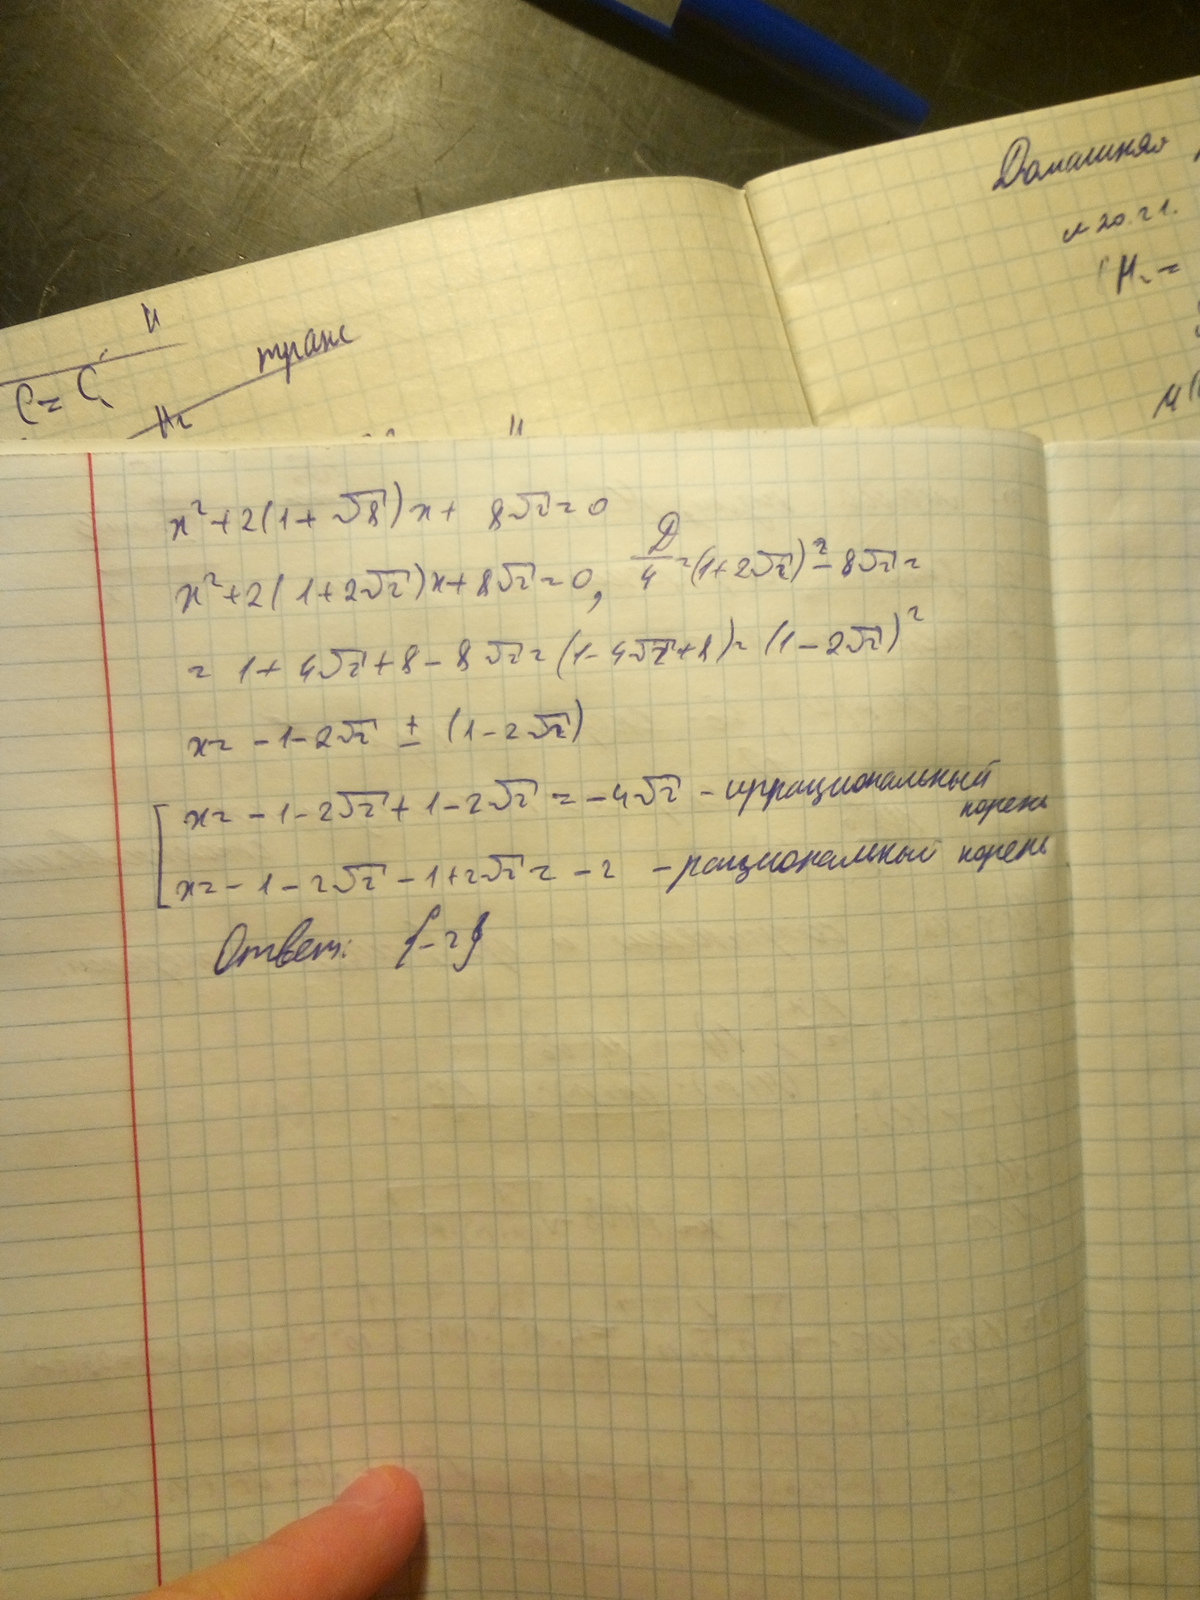 Домашняя
C = C
H
транс
H₂
H
x² + 2(1 + √8)x + 8√2 = 0
x² + 2(1 + 2√2)x + 8√2 = 0, D/4 = (1 + 2√2)² - 8√2 =
= 1 + 4√2 + 8 - 8√2 = (1 - 4√2 + 8) = (1 - 2√2)²
x = -1 - 2√2 ± (1 - 2√2)
x = -1 - 2√2 + 1 - 2√2 = -4√2 - иррациональный
корень
x = -1 - 2√2 - 1 + 2√2 = -2 - рациональный корень
Ответ: {-2}